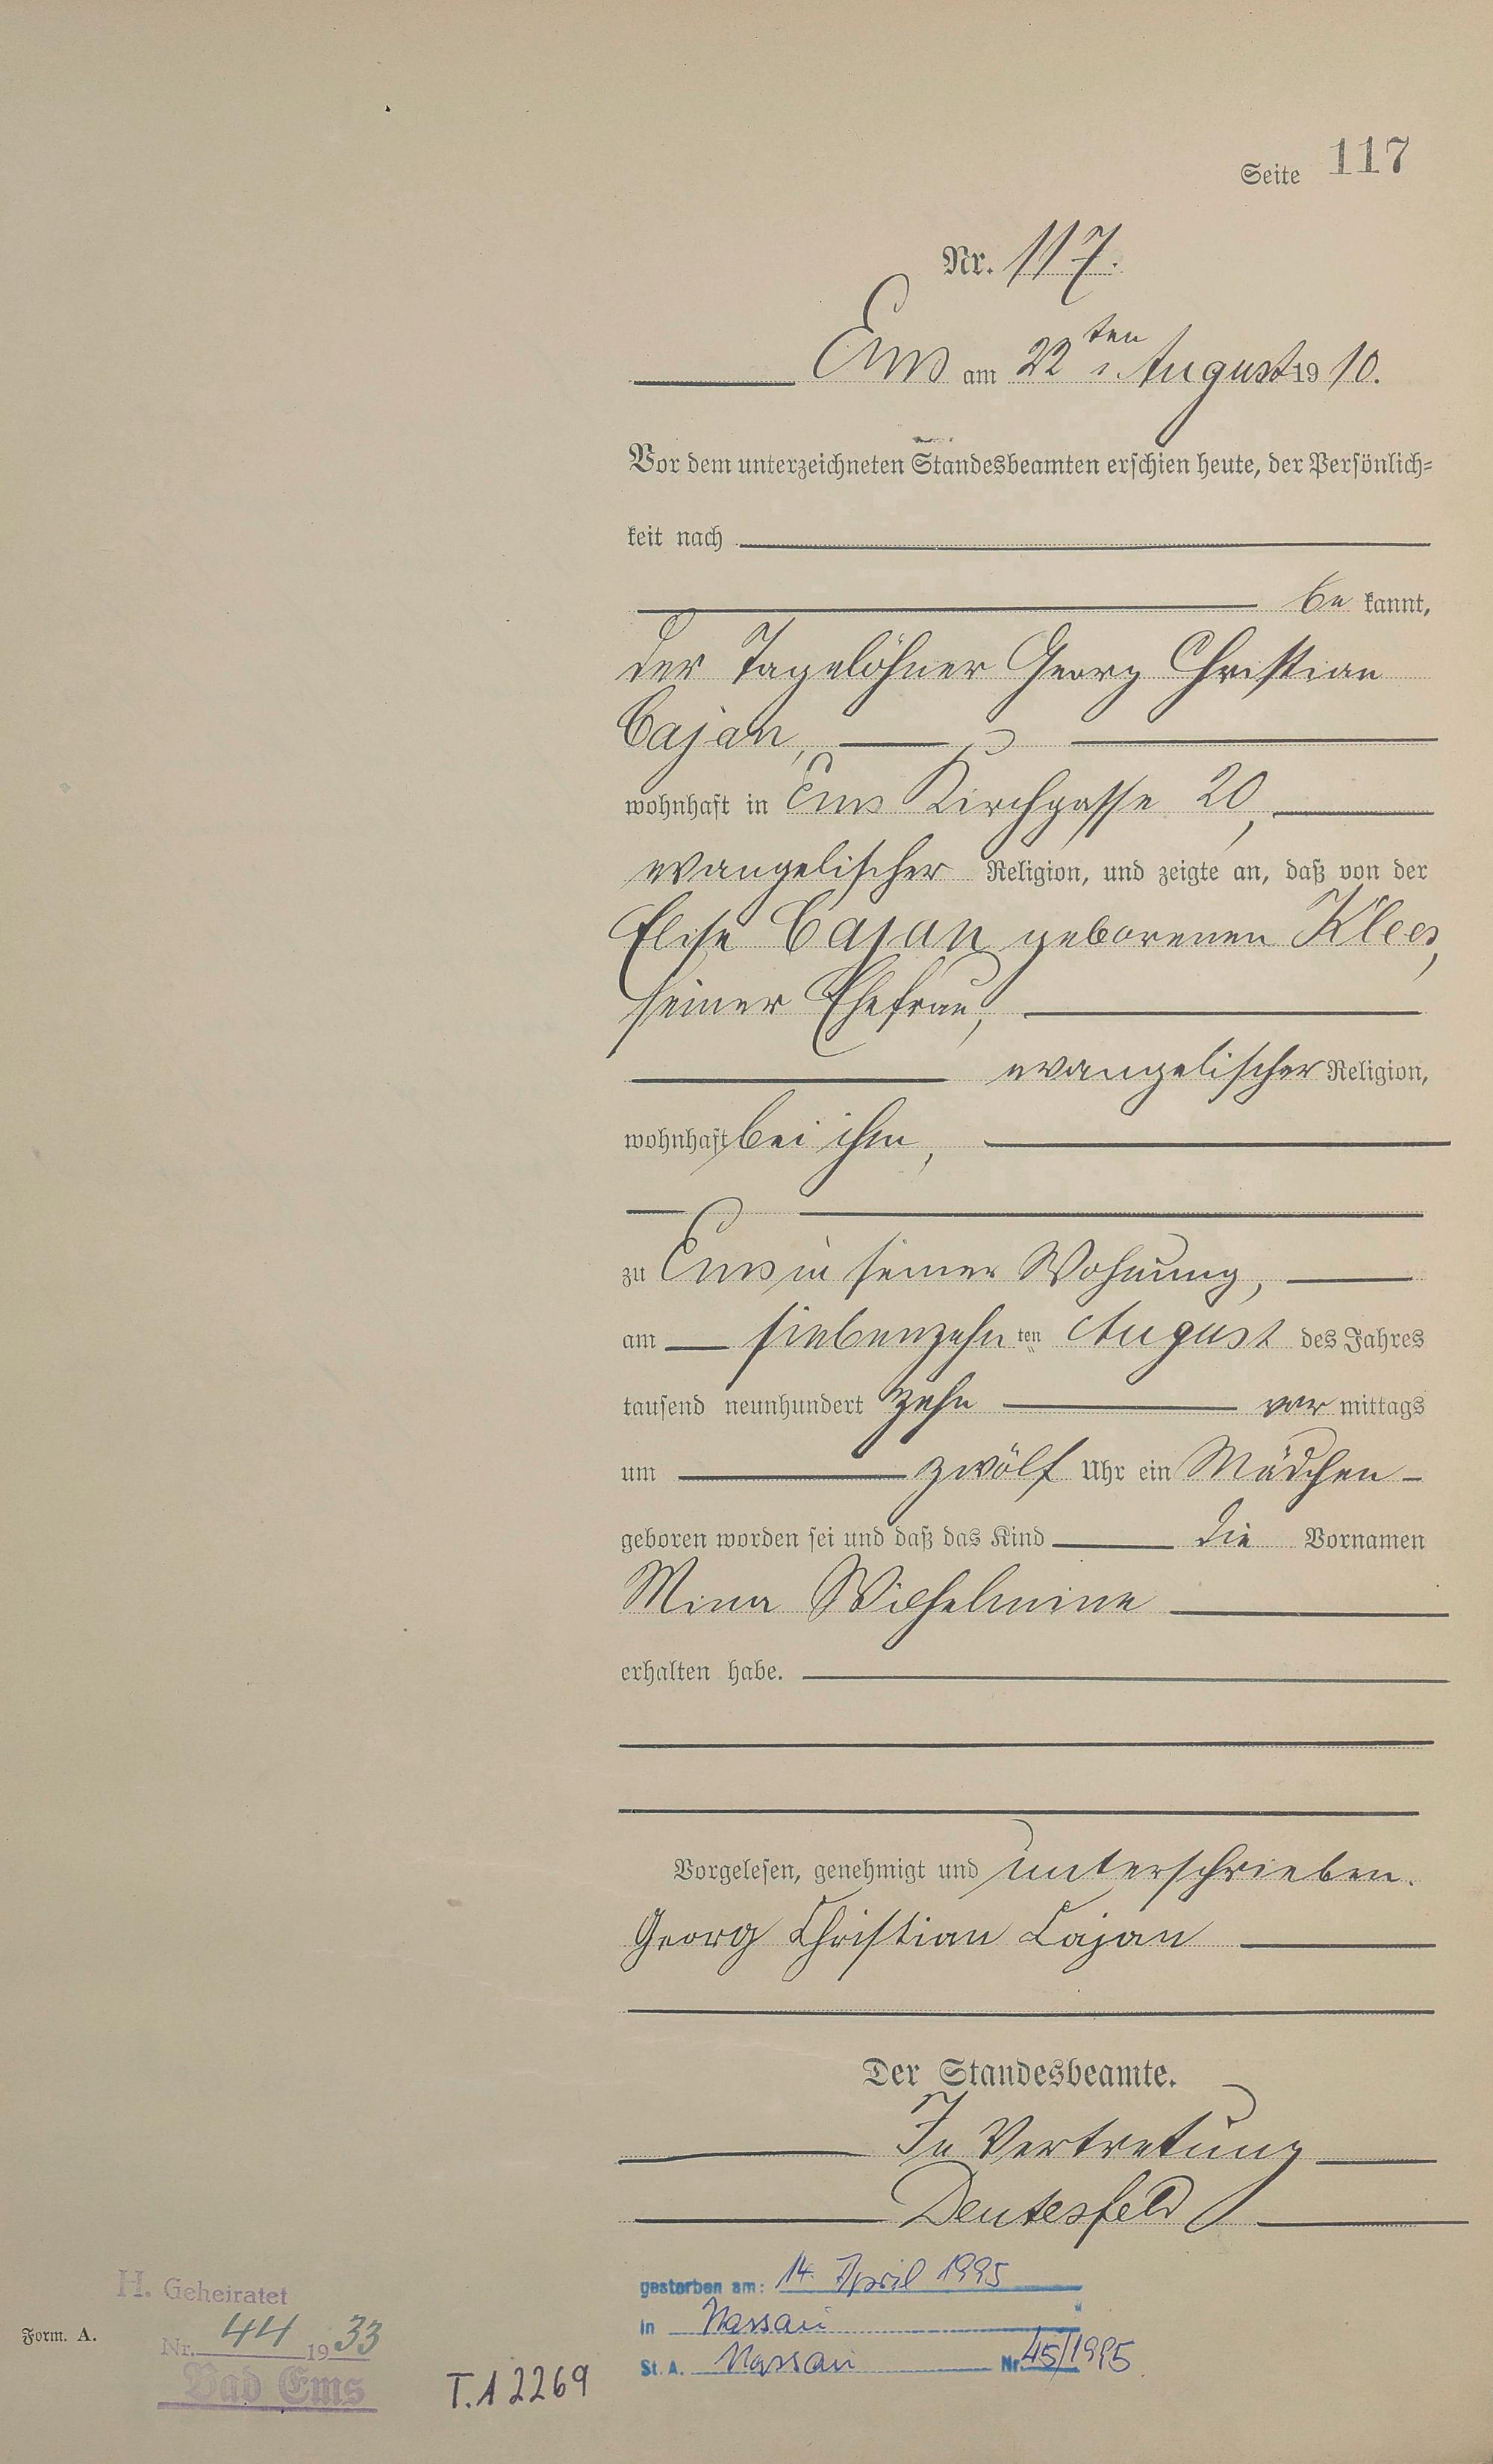 Seite 117
Nr. 117.
Ems am 22ten August 1910.
Vor dem unterzeichneten Standesbeamten erschien heute, der Persönlich-
keit nach
be kannt,
der Tagelöhner Georg Christian
Cajan,
wohnhaft in Ems Kirchgasse 20,
evangelischer Religion, und zeigte an, daß von der
Elise Cajan geborenen Klees,
seiner Ehefrau,
evangelischer Religion,
wohnhaft bei ihm,
zu Ems in seiner Wohnung,
am siebenzehn ten August des Jahres
tausend neunhundert zehn vor mittags
um zwölf Uhr ein Mädchen
geboren worden sei und daß das Kind die Vornamen
Mina Wilhelmine
erhalten habe.
Vorgelesen, genehmigt und unterschrieben.
Georg Christian Cajan
Der Standesbeamte.
In Vertretung
Deutesfeld
gestorben am: 14. April 1995
in Nassau
St. A. Nassau Nr. 45/1995
H. Geheiratet
Nr. 44 1933
Bad Ems
Form. A.
T.A 2269